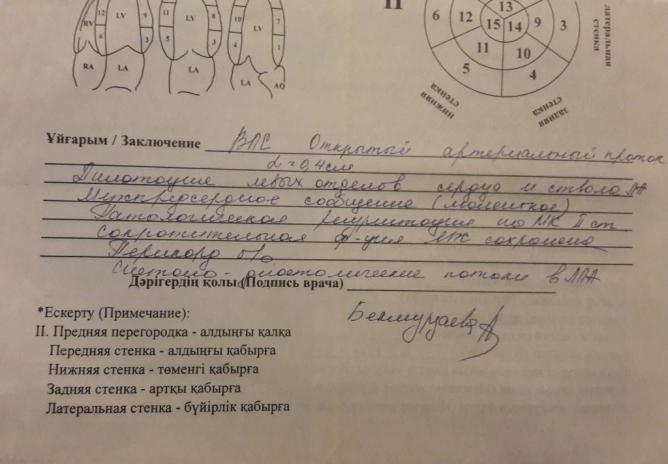 12 LV 9 11 LV 8 10 LV 7
RV 6 3 5 2 4 1
RA LA LA LA AO
II
13
6 12 15 14 9 3
11 10
5 4
латеральная стенка
нижняя стенка
задняя стенка
Ұйғарым / Заключение ВПС Открытый артериальный проток
d = 0,4 см
Дилатация левых отделов сердца и ствола ЛА
Межпредсердное сообщение (маленькое)
Патологическая регургитация на МК II ст.
Сократительная ф-ция ЛЖ сохранена
Перикард б/о
Систоло-диастолические потоки в ЛА
Дәрігердің қолы (Подпись врача)
*Ескерту (Примечание):
II. Предняя перегородка - алдыңғы қалқа
Передняя стенка - алдыңғы қабырға
Нижняя стенка - төменгі қабырға
Задняя стенка - артқы қабырға
Латеральная стенка - бүйірлік қабырға